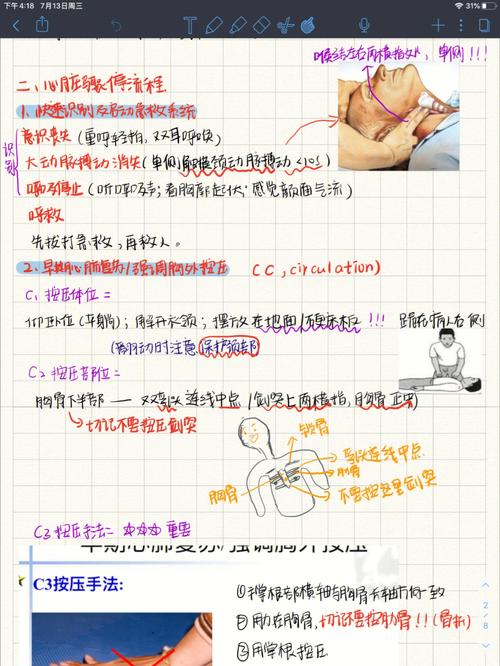 下午4:18 7月13日周三
31%
喉结左右两横指处，单侧!!!
二、心脏骤停流程
1. 快速识别及启动急救系统
识别
意识丧失（重呼轻拍，双耳呼唤）
大动脉搏动消失（单侧颈动脉搏动<10s）
呼吸停止（听呼吸声；看胸廓起伏；感觉颜面气流）
呼救
先拨打急救，再救人。
2. 早期心肺复苏/强调胸外按压 （C，circulation）
C1 按压体位：
仰卧位（平躺）；解开衣领；摆放在地面/硬床板!!! 跪在病人右侧
（翻动时注意保护颈部）
C2 按压部位：
胸骨下半部 — 双乳头连线中点/剑突上两横指，胸骨正中
切记不要按压剑突
锁骨
乳头连线中点
肋骨
胸骨
不要按这里剑突
C3 按压手法： 重要
早期心肺复苏/强调胸外按压
C3按压手法:
①掌根部横轴与胸骨长轴方向一致
②用力在胸骨，切记不要按肋骨!!（骨折）
③用掌根按压
2/8